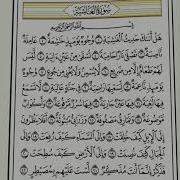 سُورَةُ الغَاشِيَةِ
بِسْمِ اللَّهِ الرَّحْمَٰنِ الرَّحِيمِ
هَلْ أَتَىٰكَ حَدِيثُ ٱلْغَٰشِيَةِ ١ وُجُوهٌ يَوْمَئِذٍ خَٰشِعَةٌ ٢ عَامِلَةٌ
نَّاصِبَةٌ ٣ تَصْلَىٰ نَارًا حَامِيَةً ٤ تُسْقَىٰ مِنْ عَيْنٍ ءَانِيَةٍ ٥ لَّيْسَ
لَهُمْ طَعَامٌ إِلَّا مِن ضَرِيعٍ ٦ لَّا يُسْمِنُ وَلَا يُغْنِي مِن جُوعٍ ٧ وُجُوهٌ
يَوْمَئِذٍ نَّاعِمَةٌ ٨ لِّسَعْيِهَا رَاضِيَةٌ ٩ فِي جَنَّةٍ عَالِيَةٍ ١٠ لَّا تَسْمَعُ
فِيهَا لَٰغِيَةً ١١ فِيهَا عَيْنٌ جَارِيَةٌ ١٢ فِيهَا سُرُرٌ مَّرْفُوعَةٌ ١٣ وَأَكْوَابٌ
مَّوْضُوعَةٌ ١٤ وَنَمَارِقُ مَصْفُوفَةٌ ١٥ وَزَرَابِيُّ مَبْثُوثَةٌ ١٦ أَفَلَا يَنظُرُونَ
إِلَى ٱلْإِبِلِ كَيْفَ خُلِقَتْ ١٧ وَإِلَى ٱلسَّمَآءِ كَيْفَ رُفِعَتْ ١٨ وَإِلَى
ٱلْجِبَالِ كَيْفَ نُصِبَتْ ١٩ وَإِلَى ٱلْأَرْضِ كَيْفَ سُطِحَتْ ٢٠
فَذَكِّرْ إِنَّمَآ أَنتَ مُذَكِّرٌ ٢١ لَّسْتَ عَلَيْهِم بِمُصَيْطِرٍ ٢٢